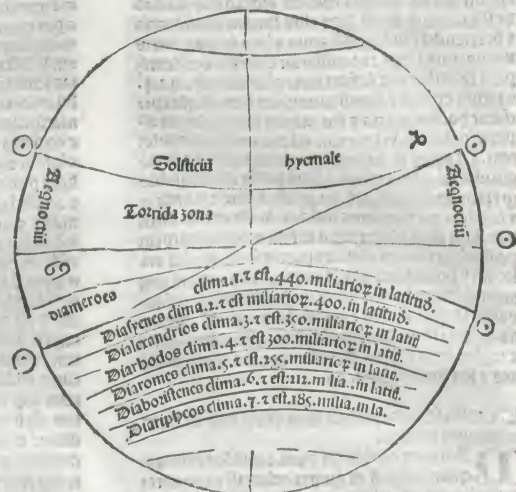 Solſticiũ hyemale ♑
Aegnoctiũ
Aegnoctiũ
Torrida zona
♋
diameroes clima.1.⁊ eſt.440.miliarioꝝ in latitud̃.
Diaſyenes clima.2.⁊ eſt miliarioꝝ.400.in latitud̃.
Dialexandrios clima.3.⁊ eſt.350.miliarioꝝ in latid̃
Diarhodos clima.4.⁊ eſt 300.miliarioꝝ in latid̃.
Diaromes clima.5.⁊ eſt.255.miliarioꝝ in latid̃.
Diaboriſtenes clima.6.⁊ eſt:212.m lia..in latid̃.
Diaripheos clima.7.⁊ eſt.185.milia.in la.